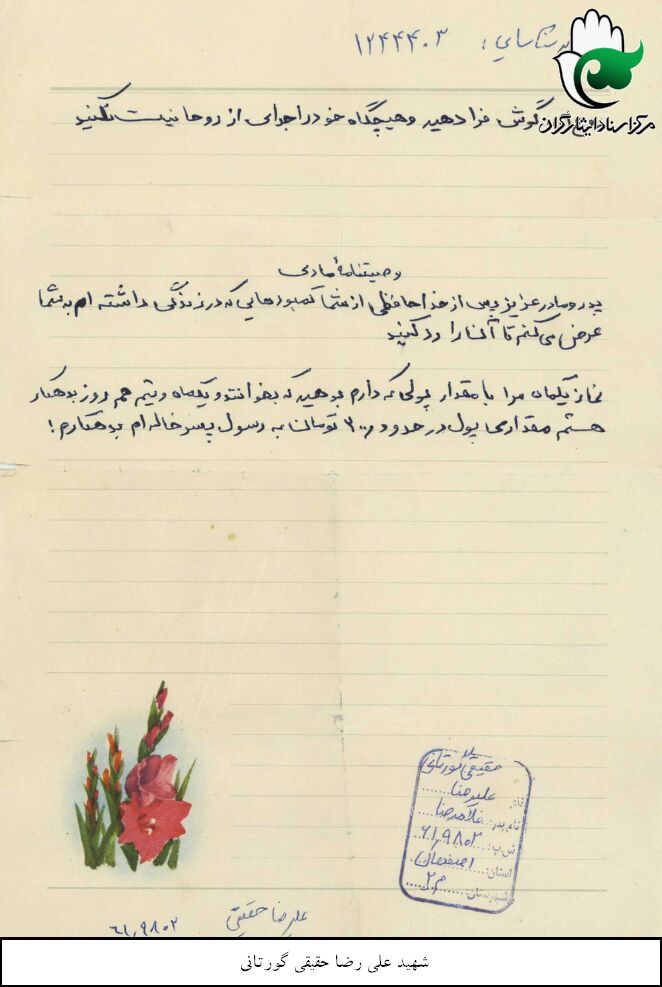 شناسایی: ۱۲۴۴۴۰۳
مرکز اسناد ایثارگران
گوش فرا دهید و هیچگاه خود را جدای از روحانیت نکنید
وصیتنامهٔ مادی
پدر و مادر عزیز پس از خداحافظی از شما کمبودهایی که در زندگی داشته ام به شما
عرض می کنم تا آنها را رد کنید
نماز یکماه مرا با مقدار پولی که دارم بدهید که بخوانند و یکماه و نیم هم روزه بدهکار
هستم مقداری پول در حدود ۳۰۰ تومان به رسول پسر خاله ام بدهکارم!
حقیقی گورتانی
علیرضا
نام پدر: غلامرضا
ش.پ: ۶۱٫۹۸۰۲
استان: اصفهان
شهرستان: م ۲
علیرضا حقیقی
۶۱٫۹۸۰۲
شهید علی رضا حقیقی گورتانی